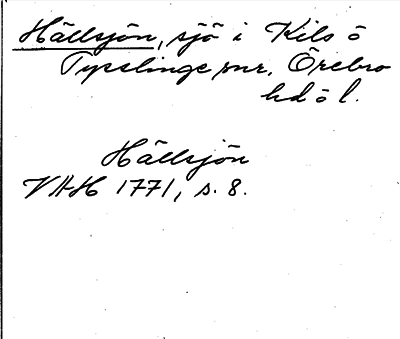 Hällsjön, sjö i Kils o
Tysslinge snr, Örebro
hd o l.
Hällsjön
VAH 1771, s. 8.